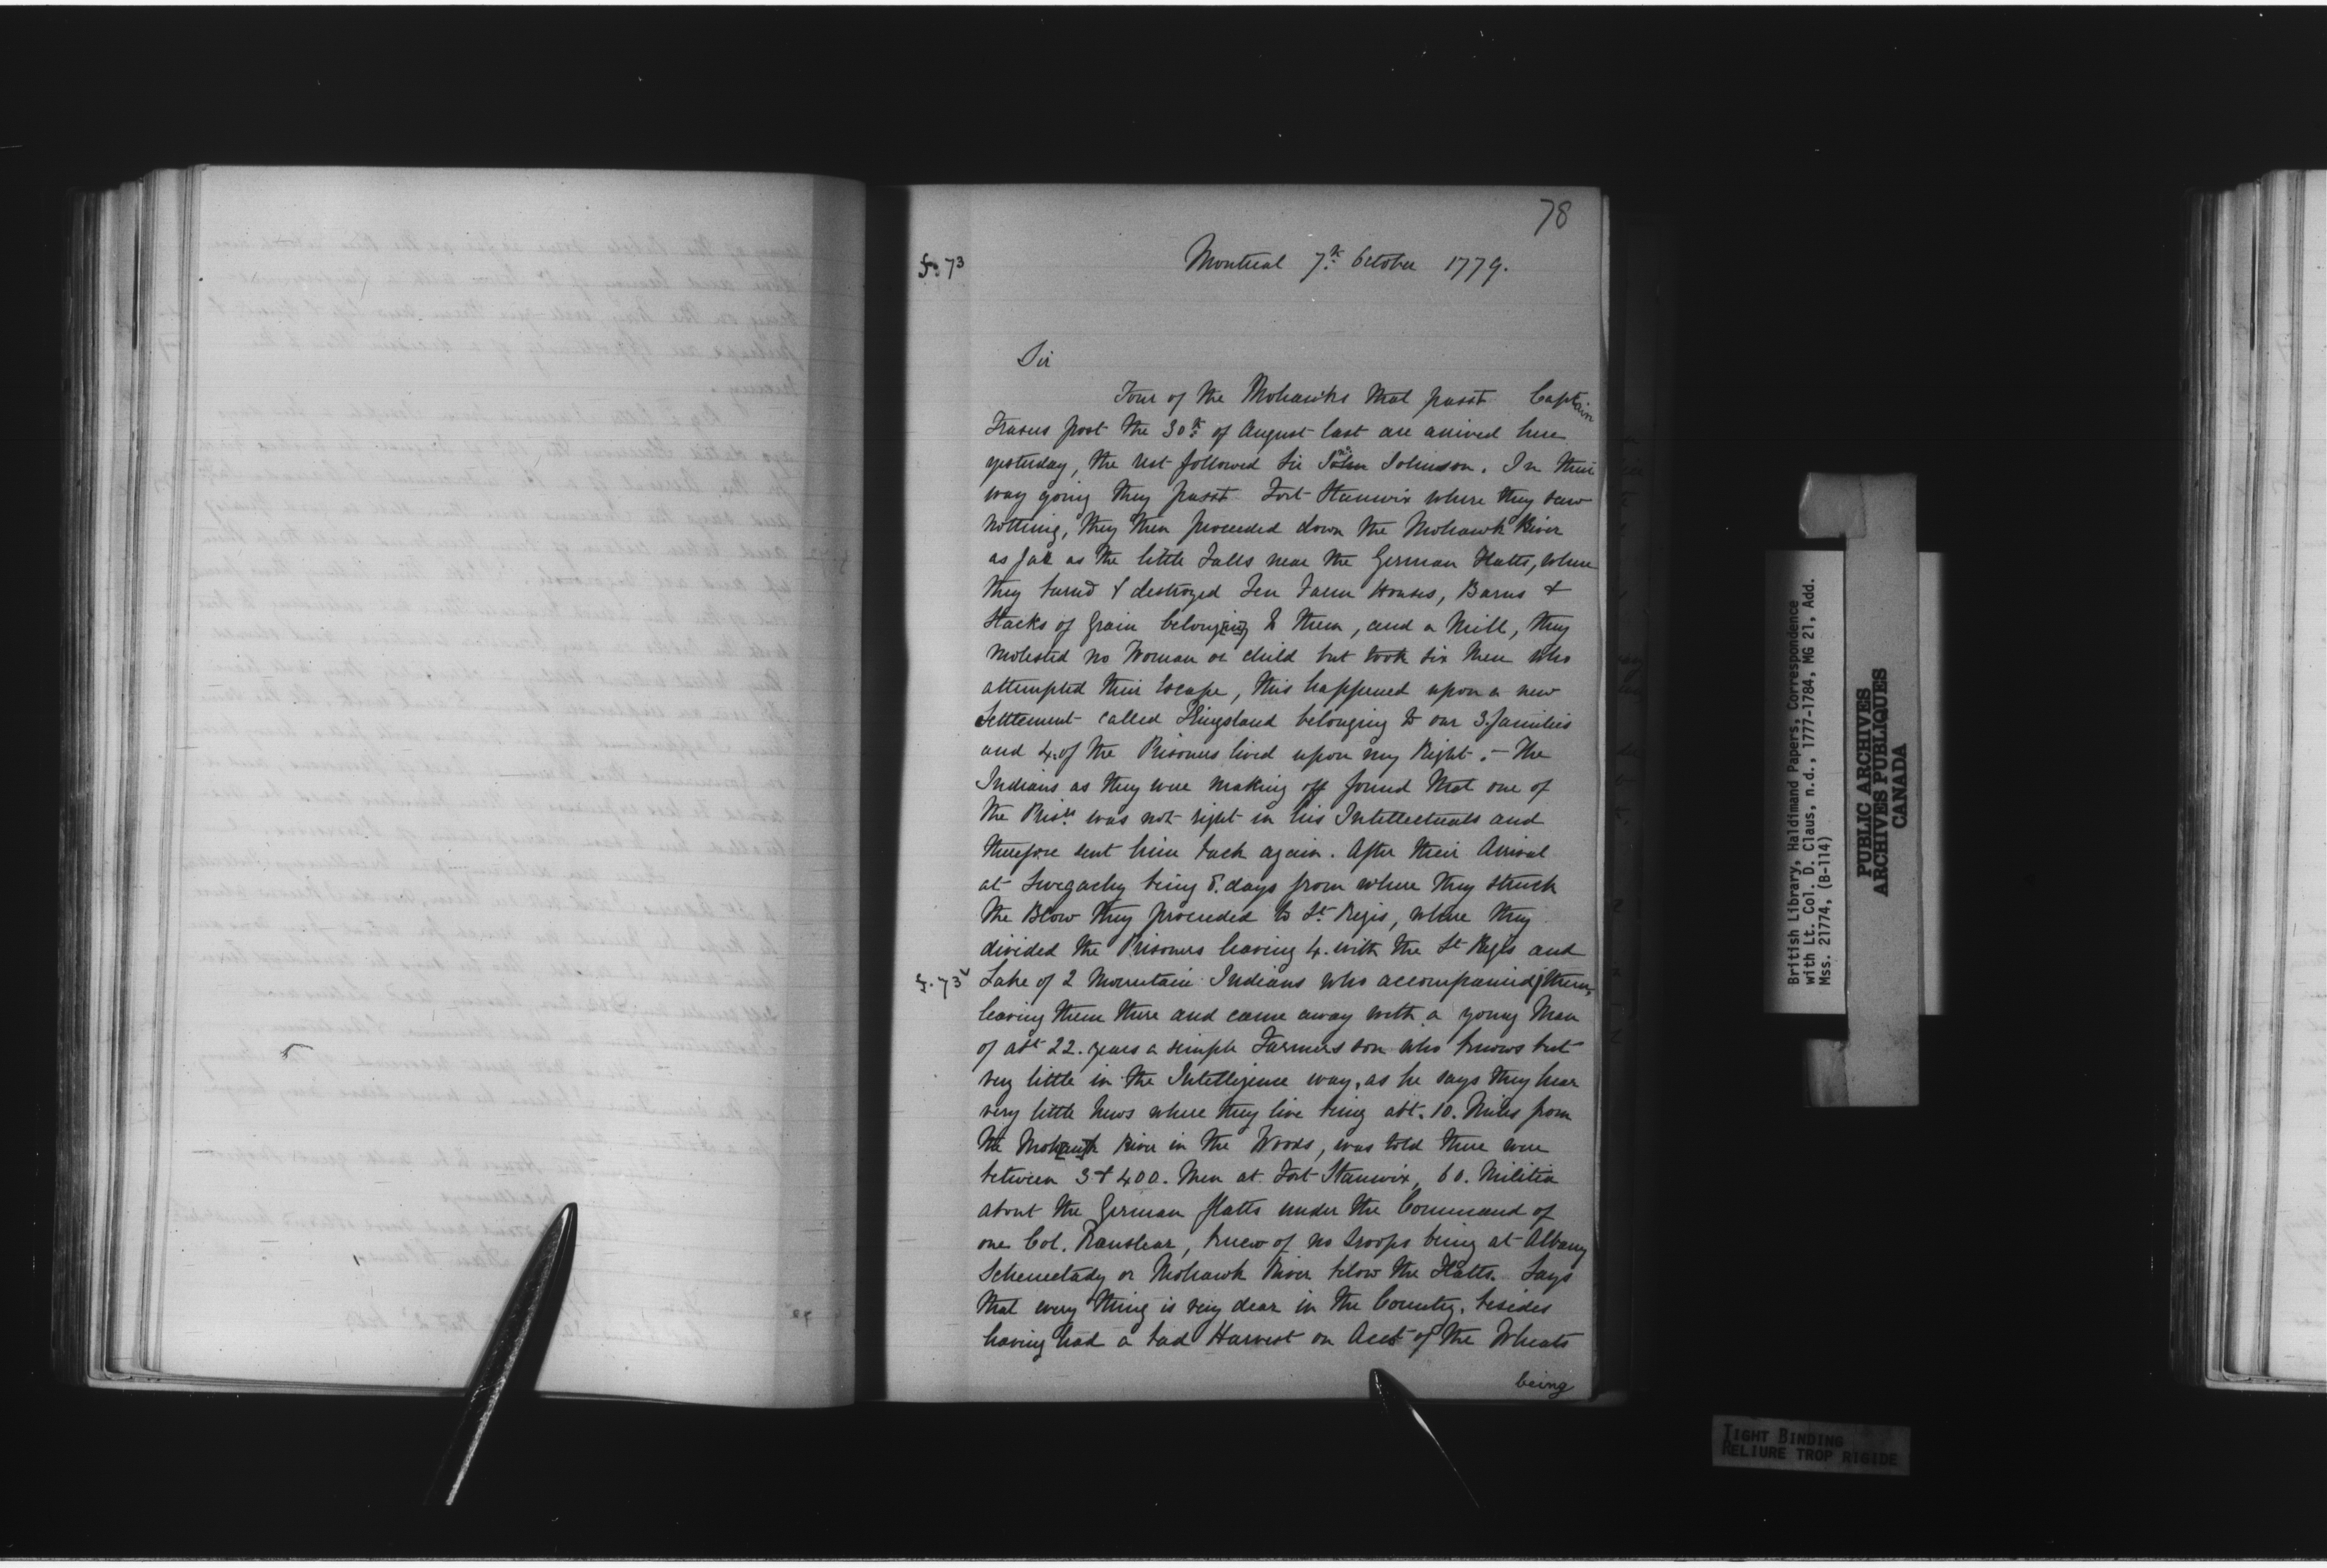 78
f. 73
Montreal 7th October 1779.
Sir
Four of the Mohawks that passt Captain
Frasers post the 30th of August last are arrived here
yesterday, the rest followed Sir John Johnson. In their
way going they passt Fort Stanwix where they saw
nothing, they then proceeded down the Mohawk River
as far as the little Falls near the German Flatts, where
they burnd & destroyed Ten Farm Houses, Barns &
Stacks of Grain belonging to them, and a Mill, they
molested no Woman or child but took six Men who
attempted their Escape, this happened upon a new
Settlement called Kingsland belonging to our 3. families
and 4. of the Prisoners lived upon my Right. – The
Indians as they were making off found that one of
the Prisrs was not right in his Intellectuals and
therefore sent him back again. After their Arrival
at Swegachy being 8. days from where they struck
the Blow they proceeded to St Regis, where they
divided the Prisoners leaving 4. with the St Regis and
f. 73v
Lake of 2 Mountain Indians who accompanied them,
leaving them there and came away with a young Man
of abt 22. years a simple Farmers son who knows but
very little in the Intelligence way, as he says they hear
very little News where they live being abt. 10. Miles from
the Mohawk River in the Woods, was told there were
between 3 & 400. Men at Fort Stanwix, 60. Militia
about the German flatts under the Command of
one Col. Ranslear, knew of no troops being at Albany
Schenectady or Mohawk River below the Flatts. Says
that every thing is very dear in the Country, besides
having had a bad Harvest on Acct of the Wheats
being
British Library, Haldimand Papers, Correspondence
with Lt. Col. D. Claus, n.d., 1777-1784, MG 21, Add.
Mss. 21774, (B-114)
PUBLIC ARCHIVES
ARCHIVES PUBLIQUES
CANADA
TIGHT BINDING
RELIURE TROP RIGIDE